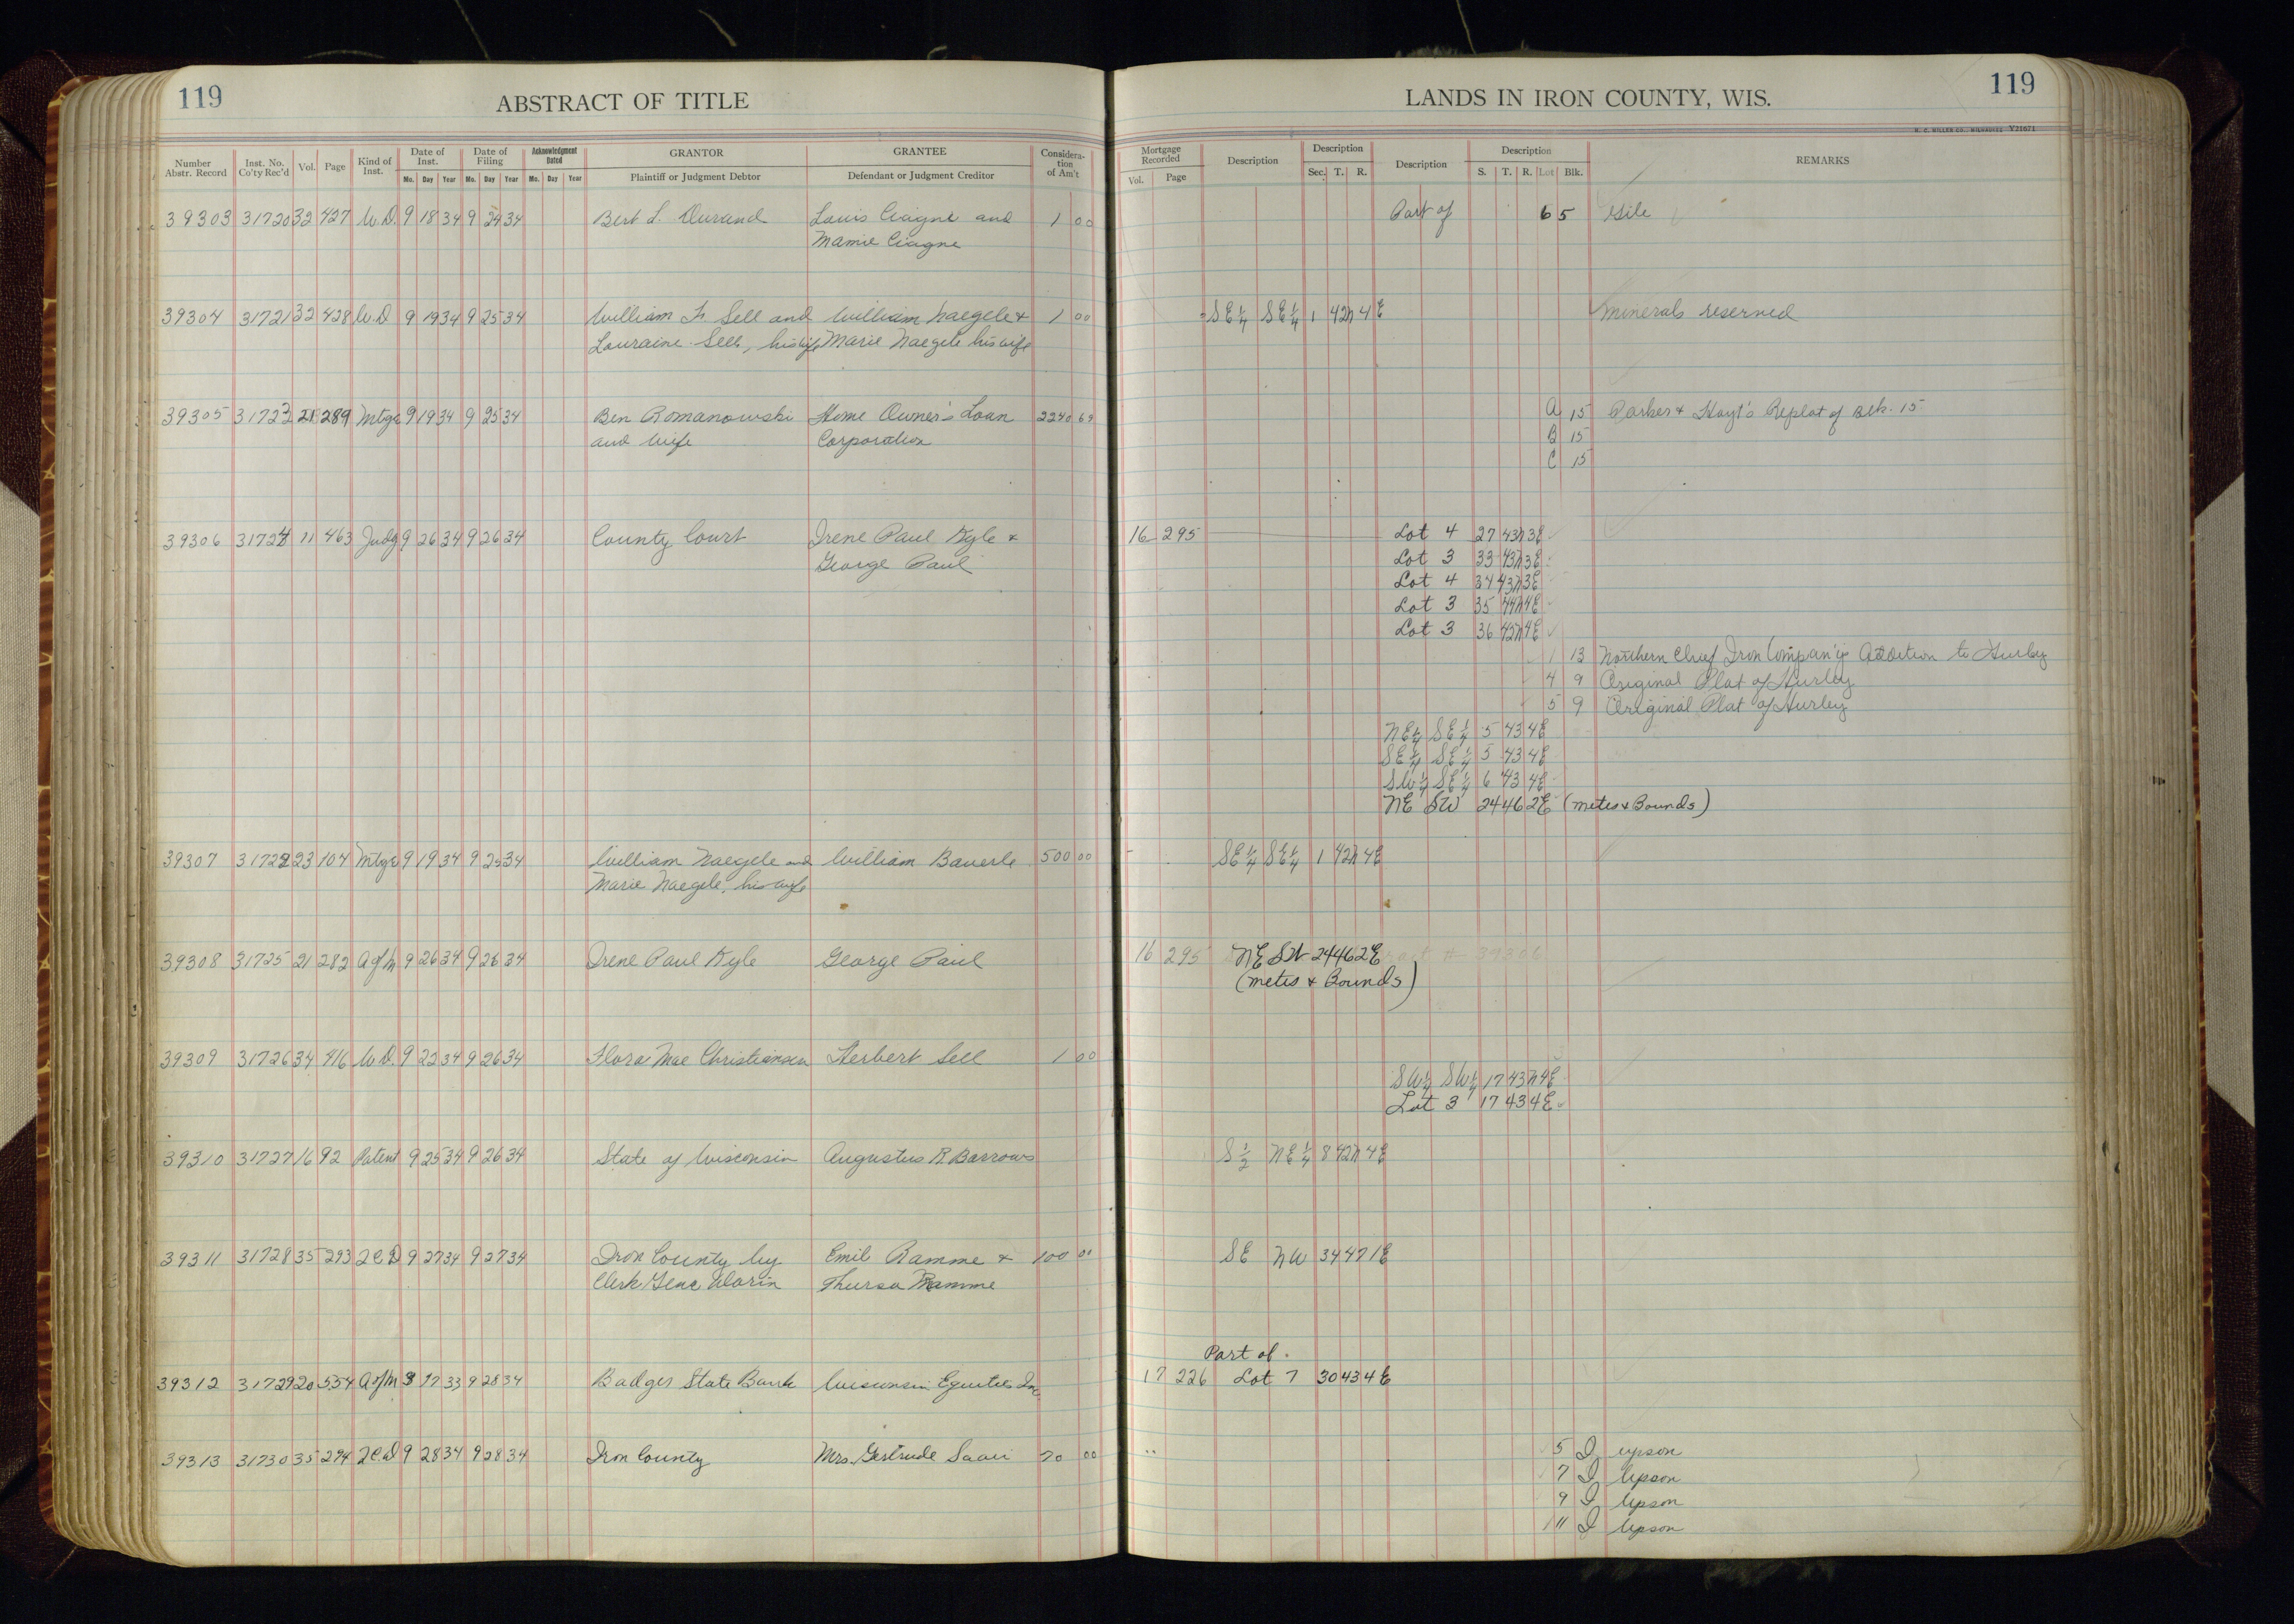 119
ABSTRACT OF TITLE
LANDS IN IRON COUNTY, WIS.
119
H. C. MILLER CO., MILWAUKEE Y21671
Number Abstr. Record
Inst. No. Co'ty Rec'd
Vol.
Page
Kind of Inst.
Date of Inst.
Mo. Day Year
Date of Filing
Mo. Day Year
Acknowledgment Dated
Mo. Day Year
GRANTOR
Plaintiff or Judgment Debtor
GRANTEE
Defendant or Judgment Creditor
Considera-
tion
of Am't
Mortgage Recorded
Vol. Page
Description
Description
Sec. T. R.
Description
Description
S. T. R. Lot Blk.
REMARKS
39303 31720 32 427 W.D. 9 18 34 9 24 34 Bert L. Durand Louis Ciagne and 1 00 Part of 6 5 Gile
Mamie Ciagne
39304 31721 32 428 W.D 9 19 34 9 25 34 William F. Sell and William Naegele & 1 00 SE¼ SE¼ 1 42N 4E Minerals reserved
Louraine Sell, his wife Marie Naegele his wife
39305 31723 21 289 Mtge 9 19 34 9 25 34 Ben Romanowski Home Owner's Loan 2240 69 A 15 Parker & Hoyt's Replat of Blk. 15
and wife Corporation B 15
C 15
39306 31724 11 463 Judg 9 26 34 9 26 34 County Court Irene Paul Kyle & 16 295 Lot 4 27 43N 3E
George Paul Lot 3 33 43N 3E
Lot 4 34 43N 3E
Lot 3 35 44N 4E
Lot 3 36 42N 4E
1 13 Northern Chief Iron Company's Addition to Hurley
4 9 Original Plat of Hurley
5 9 Original Plat of Hurley
NE¼ SE¼ 5 43 4E
SE¼ SE¼ 5 43 4E
SW¼ SE¼ 6 43 4E
NE SW 24 46 2E (metes & Bounds)
39307 31722 23 104 Mtge 9 19 34 9 25 34 William Naegele and William Bauerle 500 00 SE¼ SE¼ 1 42N 4E
Marie Naegele, his wife
39308 31725 21 282 A of M 9 26 34 9 26 34 Irene Paul Kyle George Paul 16 295 NE SW 24 46 2E # 39306
(metes & Bounds)
39309 31726 34 416 W.D. 9 22 34 9 26 34 Flora Mae Christiansen Herbert Sell 1 00
SW¼ SW¼ 17 43N 4E
Lot 3 17 43 4E
39310 31727 16 92 Patent 9 25 34 9 26 34 State of Wisconsin Augustus R. Barrows S½ NE¼ 8 42N 4E
39311 31728 35 293 9 27 34 9 27 34 Iron County by Emil Ramme & 100 00 SE NW 34 47 1E
Clerk Thursa Ramme
Part of
39312 31729 20 554 A of M 3 17 33 9 28 34 Badger State Bank Wisconsin Equities Inc 17 226 Lot 7 30 43 4E
39313 31730 35 294 9 28 34 9 28 34 Iron County Mrs. Gertrude Saari 70 00 5 I Upson
7 I Upson
9 I Upson
11 I Upson